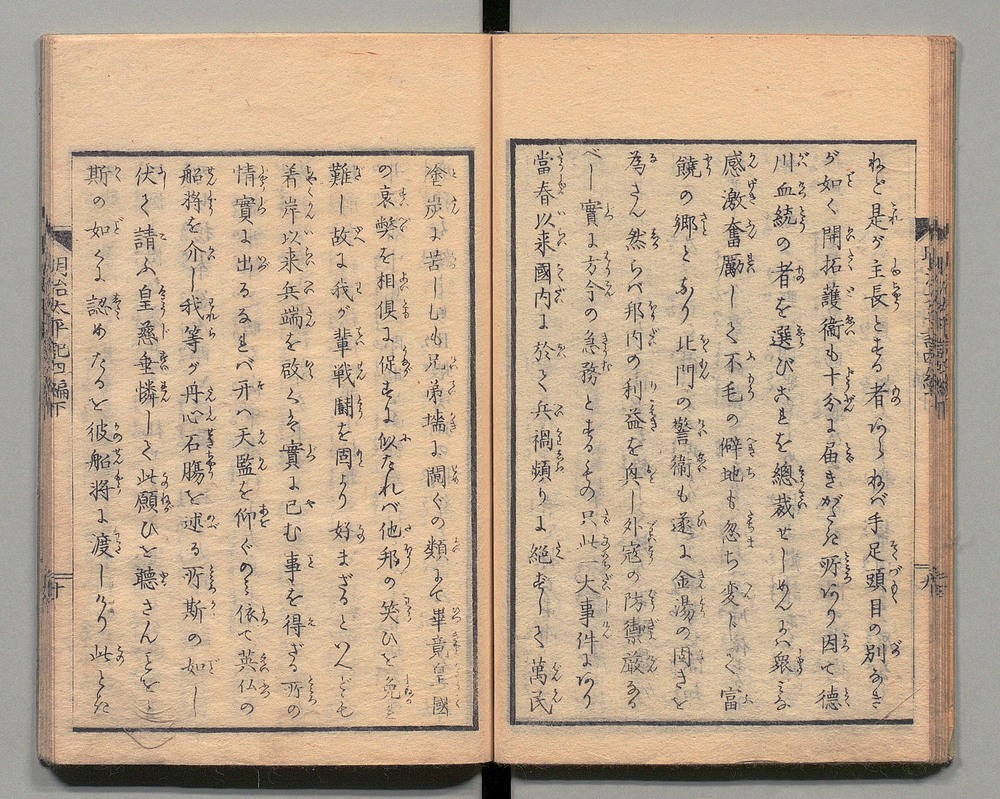 ねど是が主長とする者あらねば手足頭目の別なき
が如く開拓護衛も十分に届きがたき所あり因て德
川血統の者を選びこれを總裁せしめんにハ衆みな
感激奮厲して不毛の僻地も忽ち変じて富
饒の郷となり北門の警衛も遂に金湯の固きを
為さん然らバ邦内の利益を興し外寇の防禦嚴なる
べし實に方今の急務とするもの只此一大事件にあり
當春以来國内に於て兵禍頻りに絶ずして萬民
塗炭に苦しむも兄弟墻に鬩ぐの類にて畢竟皇國
の衰弊を相俱に促すに似たれバ他邦の笑ひを免れ
難し故に我が輩戦闘を固より好まざるといへども
着岸以来兵端を啟くも實に已む事を得ざる所の
情實に出るなれバ只ハ天監を仰ぐのミ依て英仏の
船將を介し我等が丹心石腸を述る所斯の如し
伏て請ふ皇慈垂憐して此願ひを聽さんことをと
斯の如くに認めたるを彼船將に渡しけり此とき
明治太平記四編下
九
十